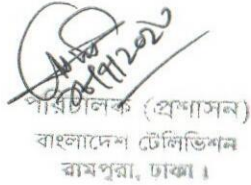 পরিচালক (প্রশাসন)
বাংলাদেশ টেলিভিশন
রামপুরা, ঢাকা।